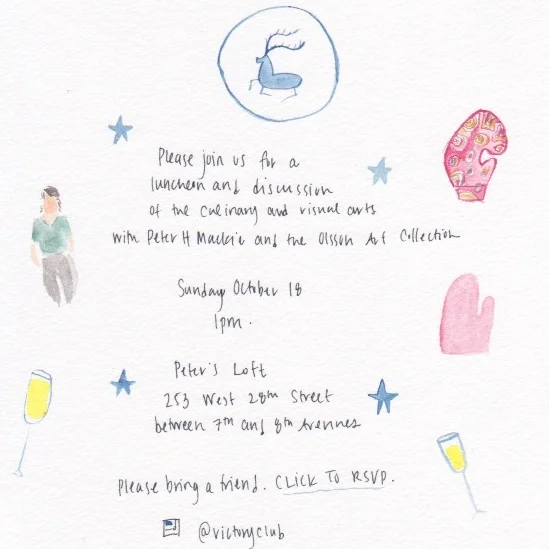 Please join us for a
luncheon and discussion
of the culinary and visual arts
with Peter H Mackie and the Olsson Art Collection
Sunday October 18
1pm.
Peter's Loft
253 West 28th Street
between 7th and 8th Avenues
Please bring a friend. CLICK TO RSVP.
@victoryclub